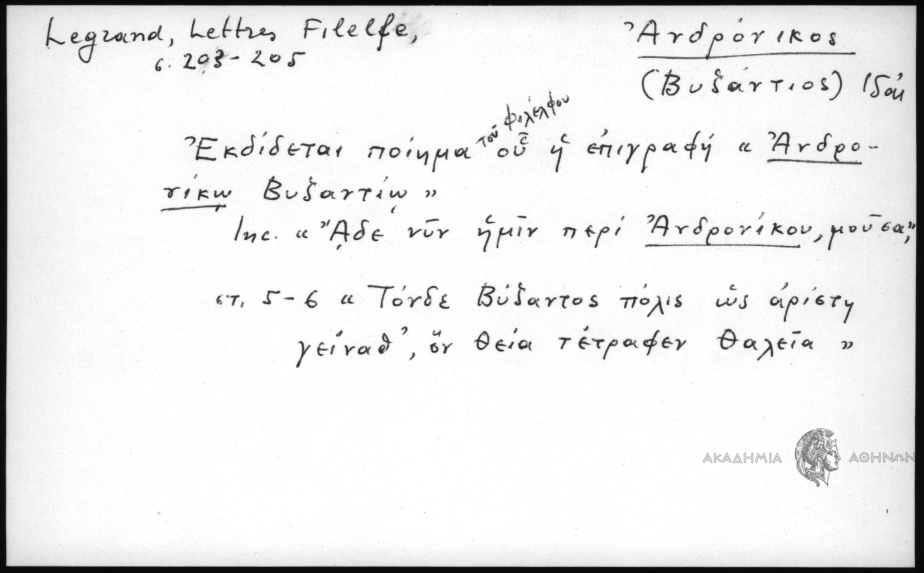 Legrand, Lettres Filelfe,
σ. 203-205
Ἀνδρόνικος
(Βυζάντιος) Ἰδαι
Ἐκδίδεται ποίημα τοῦ Φιλέλφου οὗ ἡ ἐπιγραφή « Ἀνδρο-
νίκῳ Βυζαντίῳ »
Inc. « ᾌδε νῦν ἡμῖν περί Ἀνδρονίκου, μοῦσα, »
στ. 5-6 « Τόνδε Βύζαντος πόλις ὡς ἀρίστη
γείναθ', ὅν θεία τέτραφεν Θαλεῖα »
ΑΚΑΔΗΜΙΑ ΑΘΗΝΩΝ